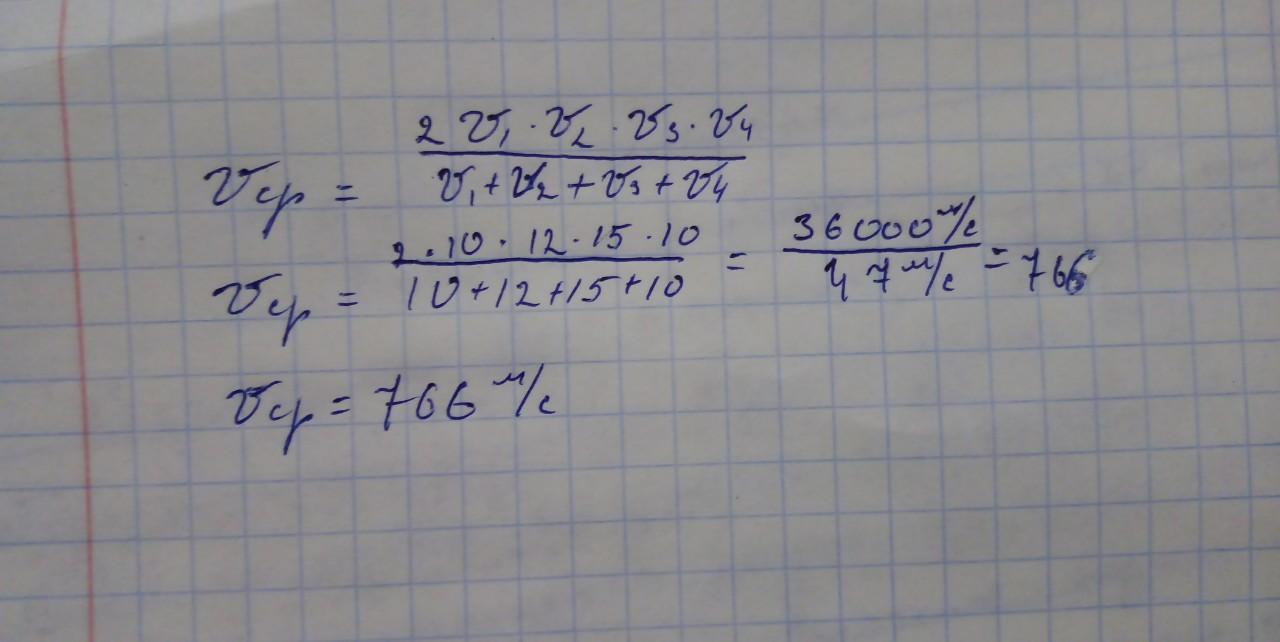 vср = 2 v₁ · v₂ · v₃ · v₄ / v₁ + v₂ + v₃ + v₄
vср = 2 · 10 · 12 · 15 · 10 / 10 + 12 + 15 + 10 = 36000 м/с / 47 м/с = 766
vср = 766 м/с